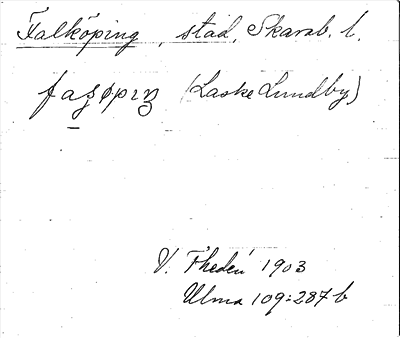 Falköping, stad, Skarab. l.
faʒøpıŋ (Laske Lundby)
V. Fheden 1903
Ulma 109:287 b